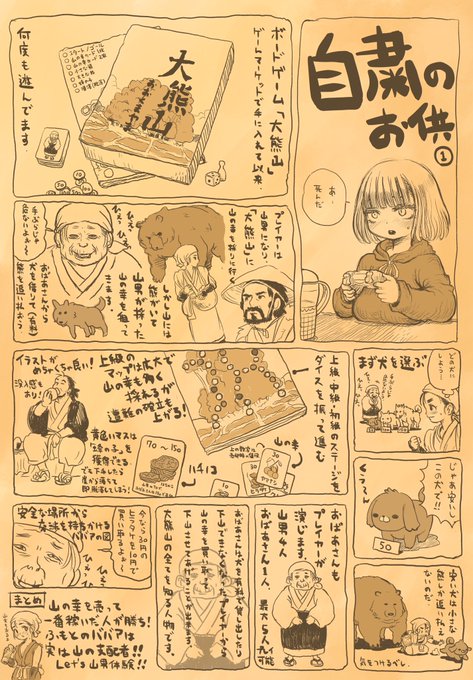 自粛の
お供
①
あー
死んだ
ボードゲーム「大熊山」
ゲームマーケットで手に入れて以来、
何度も遊んでます。
大熊山
プレイヤーは
山男になり、
「大熊山」に
山の幸を採りに行く
しかし山には
熊がいて
山男が採った
山の幸を狙って
きます。
ひぇっ
ひぇっ
手ぶらじゃ
危ないよぉ〜
おばあさんから
犬を借りて(有料)
熊を追い払おう
まず犬を選ぶ
どの犬に
しよう…
じゃあ安い
この犬で!!
くぅ〜ん
50
安い犬は小さな
熊しか追い払え
ないのだ
気をつけるべし。
上級、中級、初級のステージを
ダイスを振って進む
上級の
マップは広大で
山の幸も多く
採れるが
遭難の確立も
上がる!
イラストが
めちゃくちゃ良い!
没入感も
あり!
山の幸
70〜150
30
30
黄色いマスは
獲得できる
でもミスしたら
崖から落ちて
即脱落してしまう!
おばあさんも
プレイヤーが
演じます。
山男4人
おばあさん1人
最大5人可能
おばあさんは犬を有料で貸し出したり
下山できなくなったプレイヤーから
山の幸を買い取って
下山させてあげることが出来る
大熊山の全てを知る人物です。
安全な場所から
交渉を持ちかける
ババアの図
今なら30円の
ヒラタケを10円で
買い取るよぉ〜
ひぇっ
ひぇっ
まとめ
山の幸を売って
一番稼いだ人が勝ち!
ふもとのババアは
実は山の支配者!!
Let's 山男体験!!